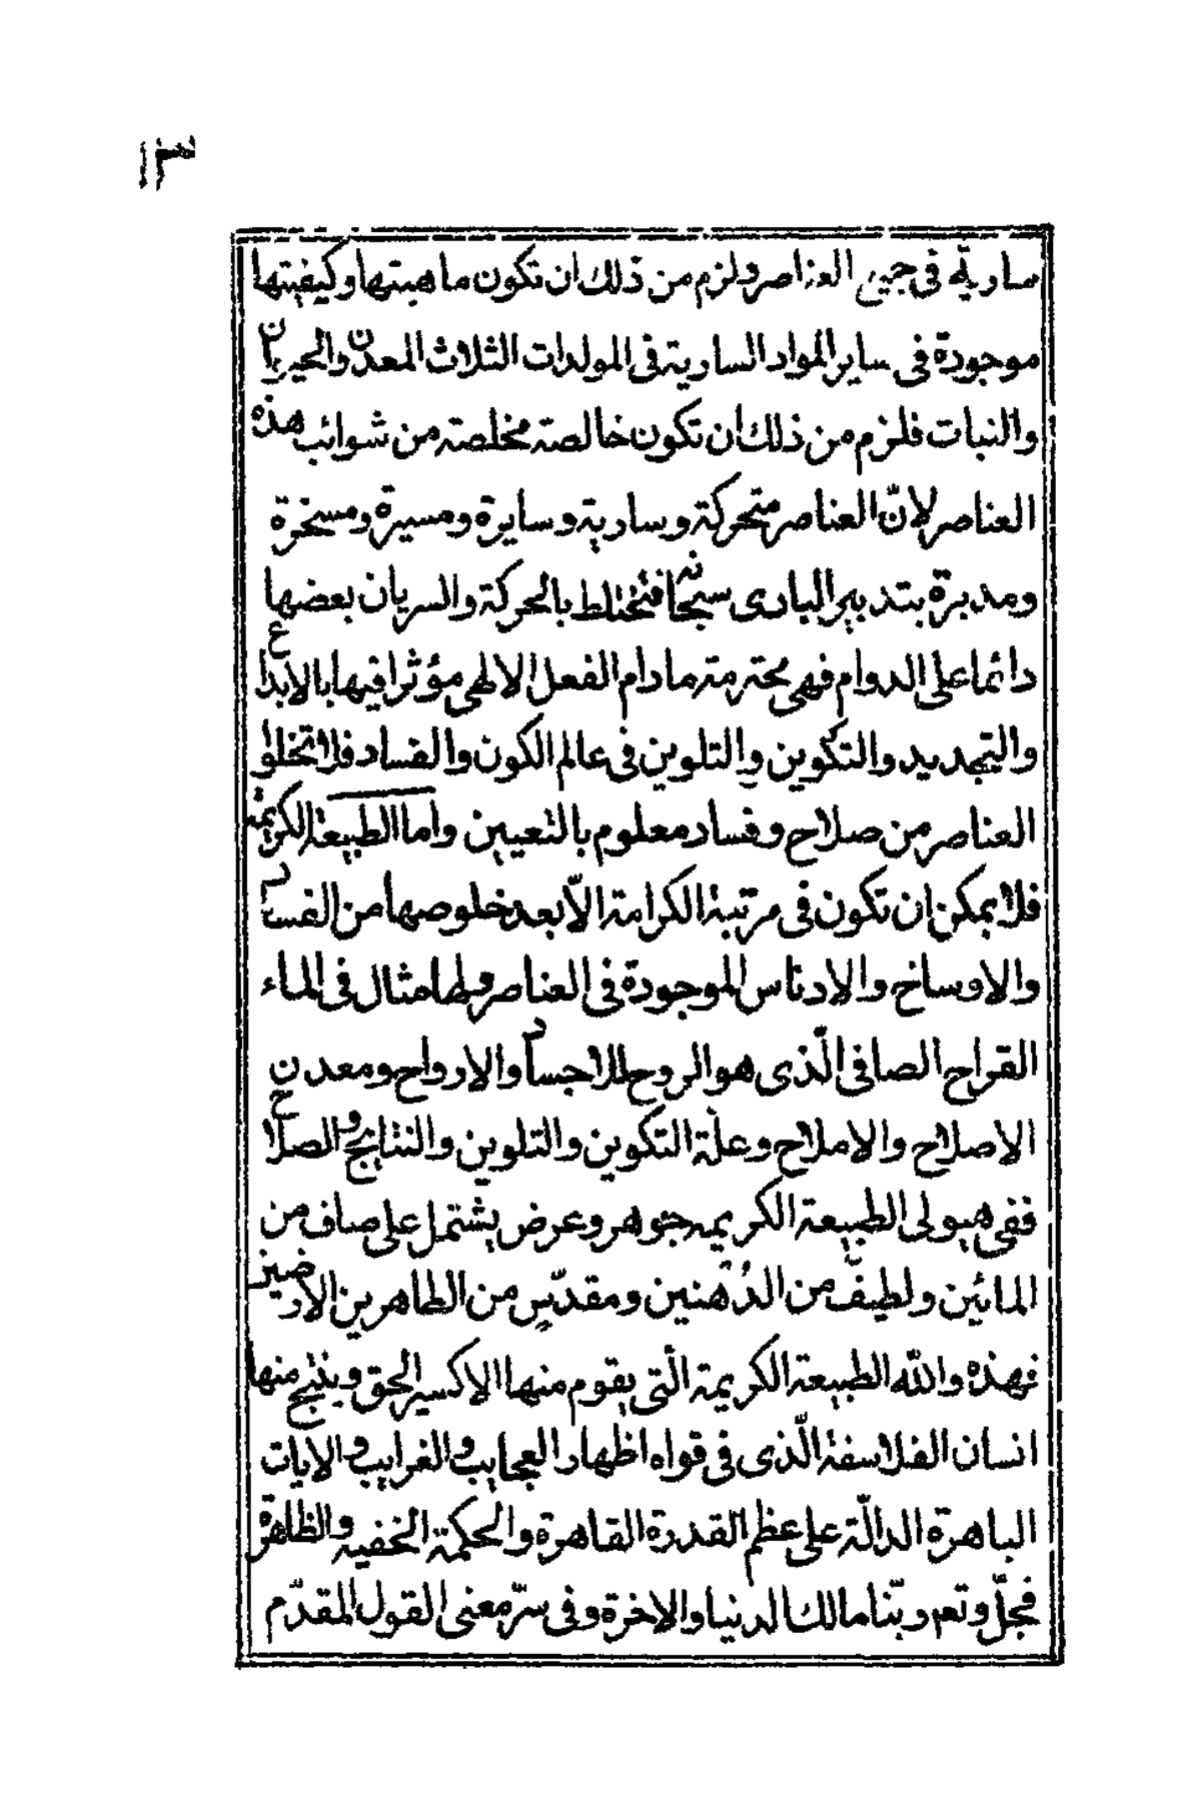 ١٣
سارية فى جميع العناصر ولزم من ذلك ان تكون ماهيتها وكيفيتها
موجودة فى ساير المواد السارية فى المولدات الثلاث المعدن والحيوان
والنبات فلزم من ذلك ان تكون خالصة مخلصة من شوائب هذه
العناصر لانّ العناصر متحركة وسارية وسايرة ومسيرة ومسخرة
ومدبرة بتدبير البادى سبحانه فتختلط بالحركة والسريان بعضها
دائما على الدوام فهى محترمة مادام الفعل الالهى مؤثرا فيها بالابداع
والتجديد والتكوين والتلوين فى عالم الكون والفساد فلا تخلوا
العناصر من صلاح وفساد معلوم بالتعيين واما الطبيعة الكريمة
فلا يمكن ان تكون فى مرتبة الكرامة الّا بعد خلوصها من الفساد
والاوساخ والادناس الموجودة فى العناصر ولها مثال فى الماء
القراح الصافى الّذى هو الروح للاجساد والارواح ومعدن
الاصلاح والاملاح وعلّة التكوين والتلوين والنتايج والصلاح
ففى هيولى الطبيعة الكريمه جوهر وعرض يشتمل على صاف من
المائين ولطيف من الدُهنين ومقدّس من الطاهرين الارضين
فهذه والله الطبيعة الكريمة الّتى يقوم منها الاكسير الحق وينتج منها
انسان الفلاسفة الّذى فى قواه اظهار العجايب والغرايب والايات
الباهرة الدالّة على عظم القدرة القاهرة والحكمة الخفيه والظاهرة
فجلّ وتعم ربّنا مالك الدنيا والاخرة وفى سرّ معنى القول المقدّم